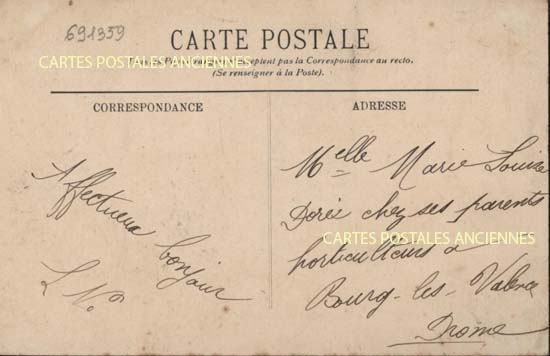 691359
CARTE POSTALE
CARTES POSTALES ANCIENNES
pas la Correspondance au recto.
(Se renseigner à la Poste).
CORRESPONDANCE
ADRESSE
Affectueux bonjour
L V.
Melle Marie Louise
Dorée chez ses parents
CARTES POSTALES ANCIENNES
horticulteurs a
Bourg-les-Valence
Drome